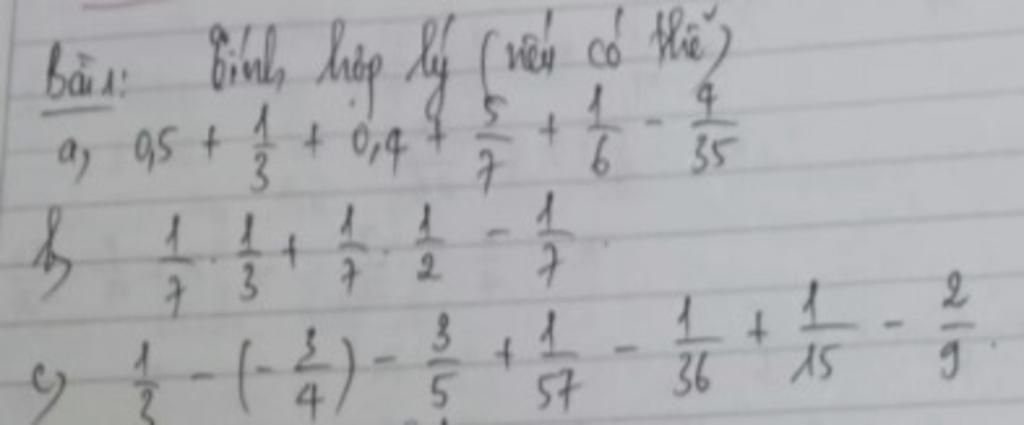 Bài 1: Tính hợp lý (nếu có thể)
a, 0,5 + 1/3 + 0,4 + 5/7 + 1/6 - 4/35
b, 1/7 . 1/3 + 1/7 . 1/2 - 1/7
c, 1/3 - (-3/4) - 3/5 + 1/57 - 1/36 + 1/15 - 2/9